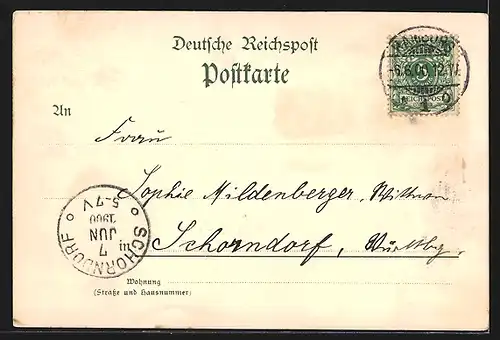 Deutsche Reichspost
Postkarte
6.6.00.12
REICHSPOST
An
Frau
Sophie Mildenberger, Wittwe
in Schorndorf, Württbg.
SCHORNDORF
7
JUN
1900
5-7V
Wohnung
(Straße und Hausnummer)